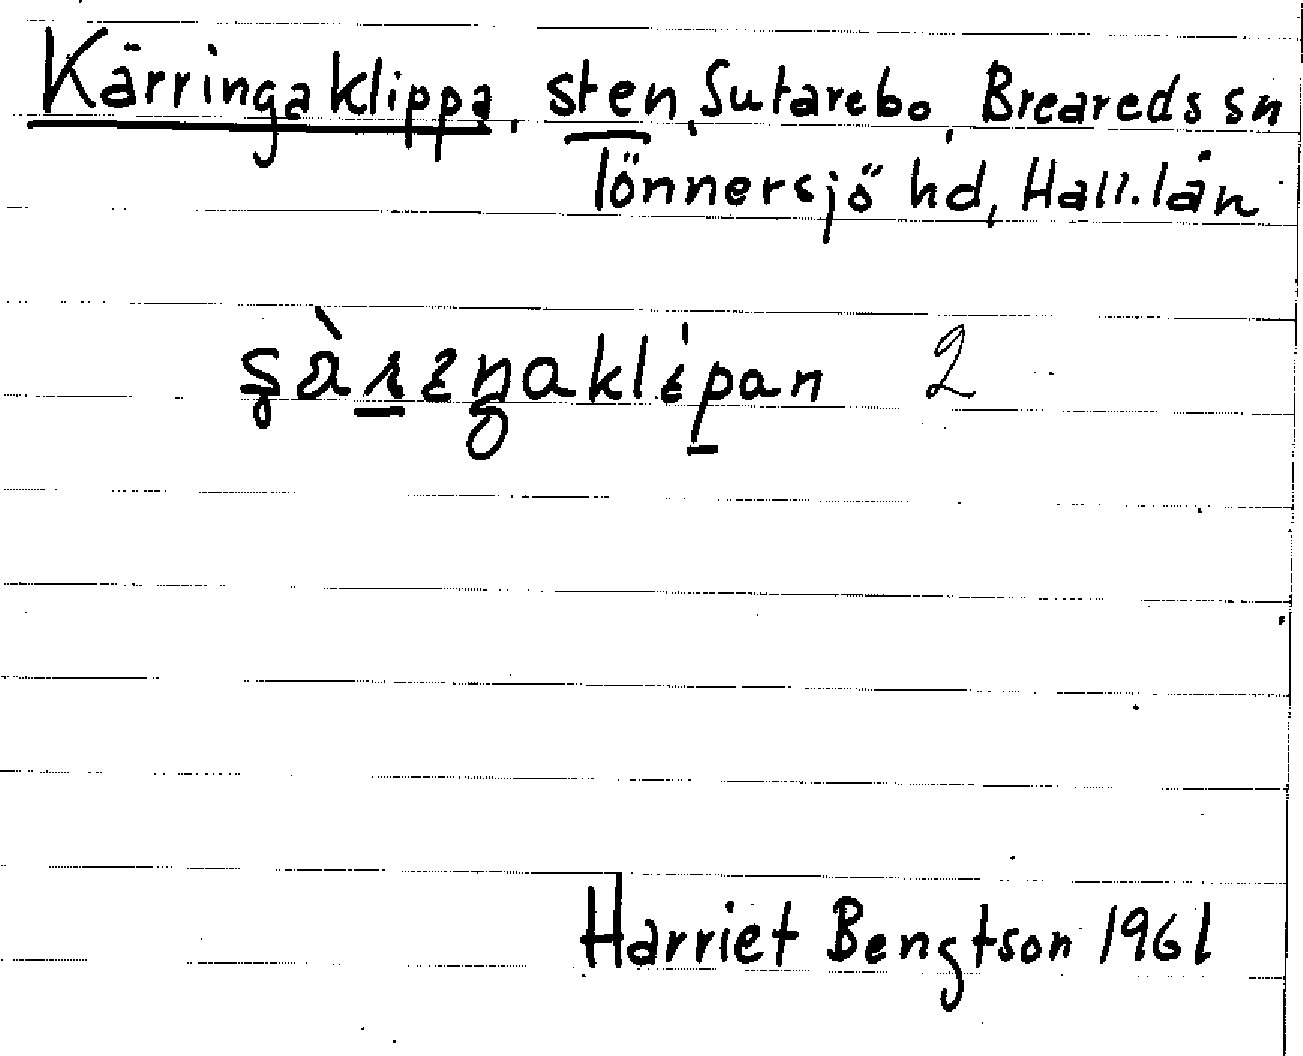 Kärringaklippa, sten, Sutarebo, Breareds sn
Tönnersjö hd, Hall. län
2
Harriet Bengtson 1961